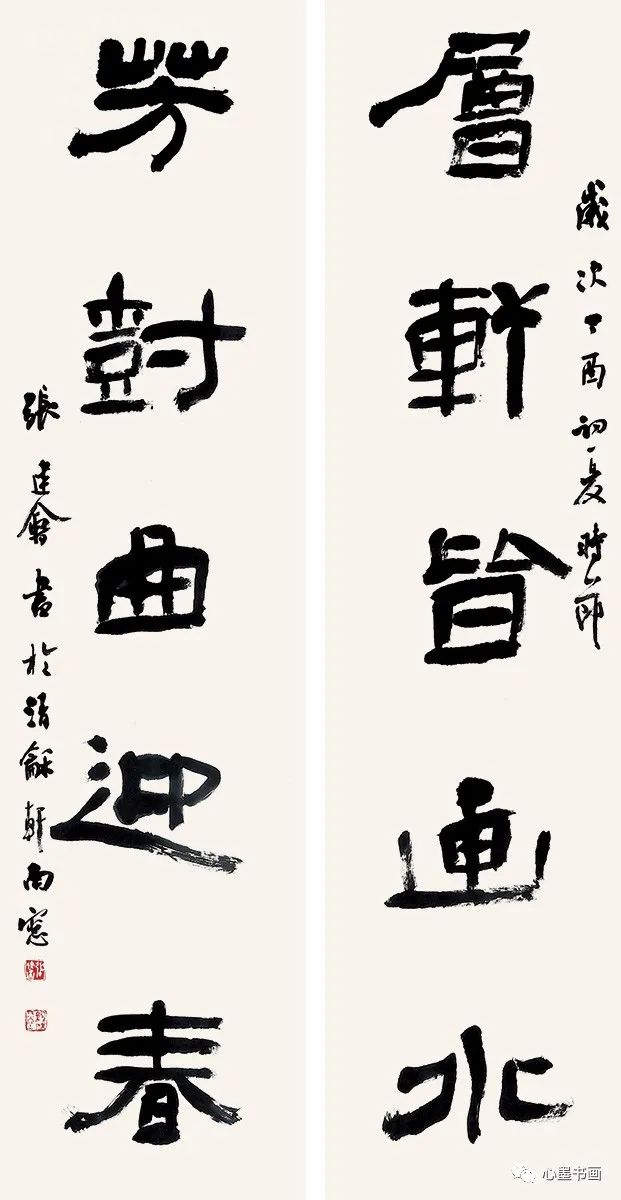 歲次丁酉初夏時節
層軒皆画水
芳尌曲迎春
張建會書於龢軒南窓
心墨书画